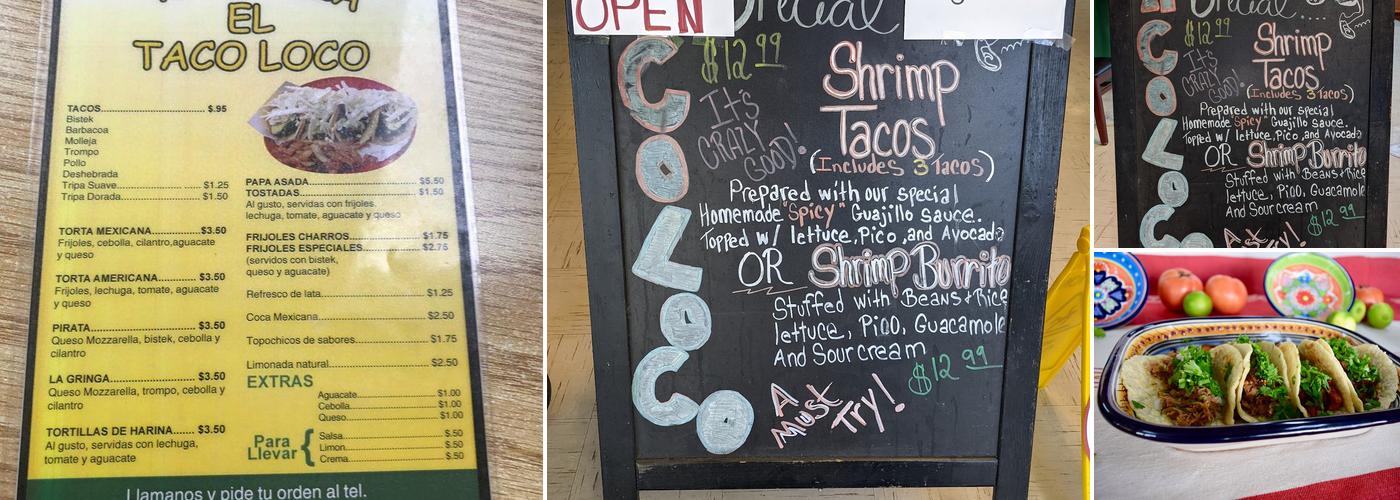 EL
TACO LOCO
TACOS $.95
Bistek
Barbacoa
Molleja
Trompo
Pollo
Deshebrada
Tripa Suave $1.25
Tripa Dorada $1.50
TORTA MEXICANA $3.50
Frijoles, cebolla, cilantro,aguacate
y queso
TORTA AMERICANA $3.50
Frijoles, lechuga, tomate, aguacate
y queso
PIRATA $3.50
Queso Mozzarella, bistek, cebolla y
cilantro
LA GRINGA $3.50
Queso Mozzarella, trompo, cebolla y
cilantro
TORTILLAS DE HARINA $3.50
Al gusto, servidas con lechuga,
tomate y aguacate
PAPA ASADA $5.50
TOSTADAS $1.50
Al gusto, servidas con frijoles.
lechuga, tomate, aguacate y queso
FRIJOLES CHARROS $1.75
FRIJOLES ESPECIALES $2.75
(servidos con bistek,
queso y aguacate)
Refresco de lata $1.25
Coca Mexicana $2.50
Topochicos de sabores $1.75
Limonada natural $2.50
EXTRAS
Aguacate $1.00
Cebolla $1.00
Queso $1.00
Para
Llevar
Salsa $.50
Limon $.50
Crema $.50
Llamanos y pide tu orden al tel.
OPEN
Special
COLOCO
$12.99
It's
CRAZY
GOOD!
Shrimp
Tacos
(Includes 3 Tacos)
Prepared with our special
Homemade "Spicy" Guajillo sauce.
Topped w/ lettuce, Pico, and Avocado
OR Shrimp Burrito
Stuffed with Beans + Rice
lettuce, Pico, Guacamole
And Sour cream
$12.99
A
Must
Try!
COLOC
$12.99
It's
CRAZY
GOOD!
Shrimp
Tacos
(Includes 3 Tacos)
Prepared with our special
Homemade "Spicy" Guajillo sauce.
Topped w/ lettuce, Pico, and Avocado
OR Shrimp Burrito
Stuffed with Beans + Rice
lettuce, Pico, Guacamole
And Sour cream
$12.99